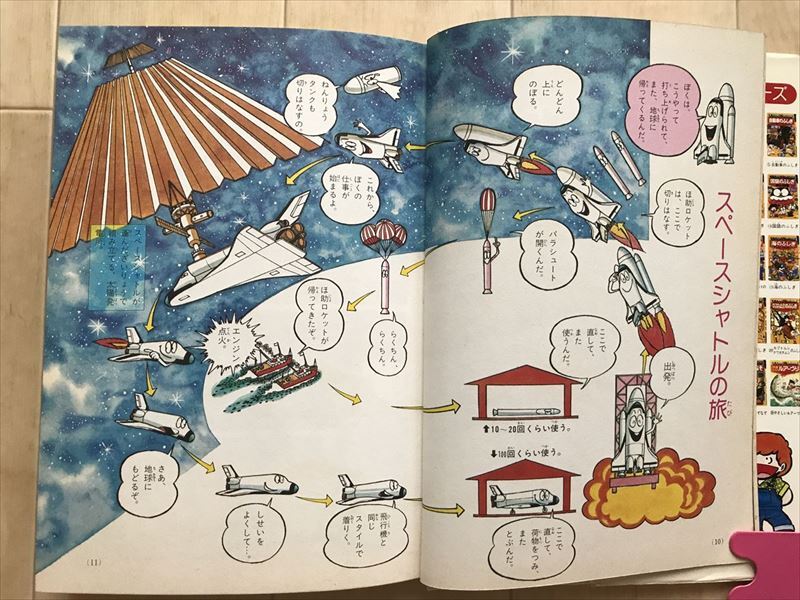 スペースシャトルの旅
たび
ぼくは、
こうやって
打ち上げられて、
また、地球に
帰ってくるんだ。
出発。
ほ助ロケット
は、ここで
切りはなす。
どんどん
上に
のぼる。
パラシュート
が開くんだ。
ねんりょう
タンクも
切りはなすの。
これから
ぼくの
仕事が
始まるよ。
らくちん、
らくちん。
ほ助ロケットが
帰ってきたぞ。
ここで
直して、
また
使うんだ。
⬆10〜20回くらい使う。
⬇100回くらい使う。
エンジン
点火。
さあ、
地球に
もどるぞ。
しせいを
よくして…。
飛行機と
同じ
スタイルで
着りく。
ここで
直して、
また
荷物をつみ、
とぶんだ。
(11)
(10)
ーズ